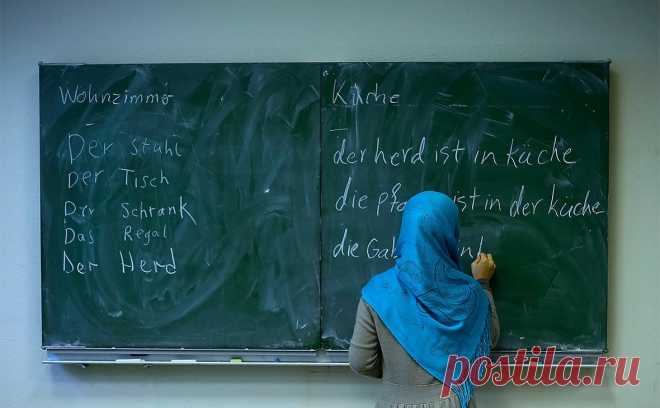 Wohnzimmer
Der Stuhl
Der Tisch
Der Schrank
Das Regal
Der Herd
Küche
der herd ist in küche
die ist in der küche
die
postila.ru